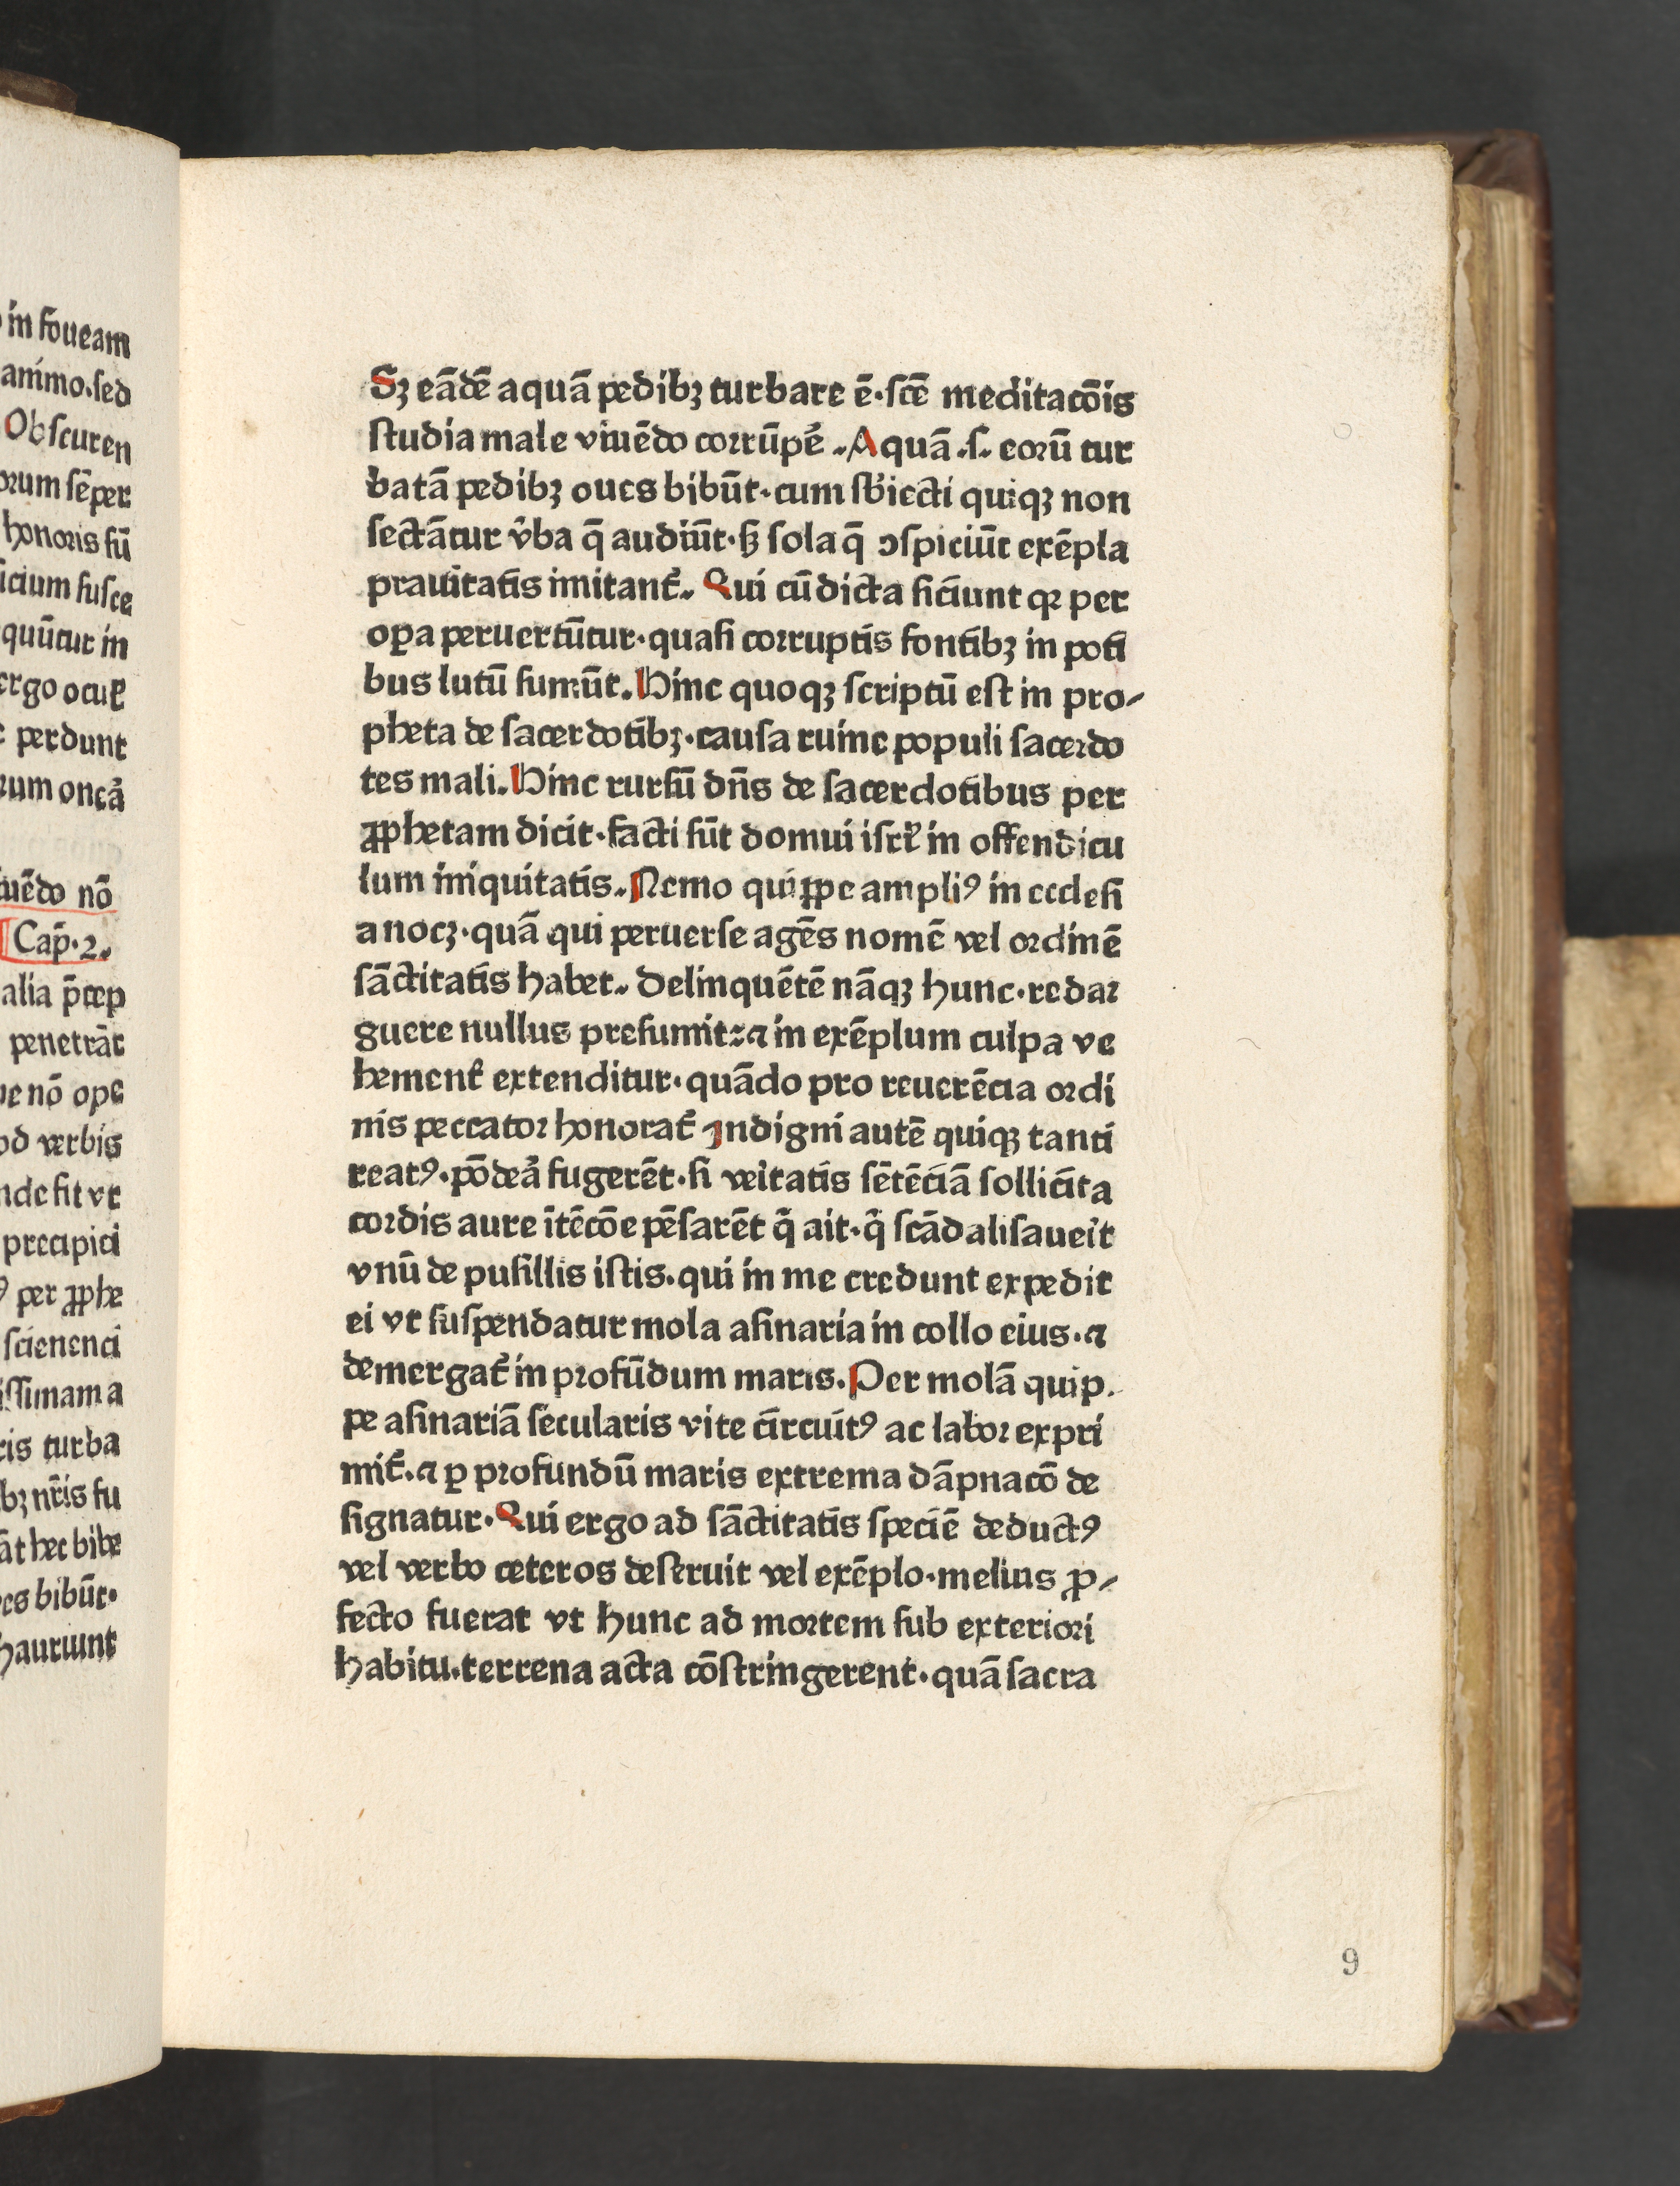 in foueam
animo.sed
Obscuren
orum sēper
honoris sū
icium susce
quūtur in
ergo oculꝭ
perdunt
rum oneā
uēdo nō
Cap̄.2.
alia p̄cep
penetrāt
ue nō ope
od verbis
nde fit vt
precipici
per ꝓphe
scienenci
issimam a
ris turba
bꝫ nr̄is su
āt hec bibe
es bibūt.
hauriunt
Sꝫ eādē aquā pedibꝫ turbare ē·scē meditacōis
studia male viuēdo corrūpe᷑. Aquā .s. eorū tur
batā pedibꝫ oues bibūt·cum sb̓iecti quiqꝫ non
sectātur v̓ba q̄ audiūt·sꝫ sola q̄ ꝯspiciūt exēpla
prauitatis imitant᷑. Qui cū dicta siciunt qꝛ per
oꝑa peruertūtur·quasi corruptis fontibꝫ in poti
bus lutū sumūt. Hinc quoqꝫ scriptū est in pro-
pheta de sacerdotibꝫ·causa ruine populi sacerdo
tes mali. Hinc rursū dn̄s de sacerdotibus per
ꝓphetam dicit·facti sūt domui isrl̓ in offendicu
lum iniquitatis. Nemo quippe ampliꝰ in ecclesi
a nocꝫ·quā qui peruerse agēs nomē vel ordinē
sāctitatis habet. Delinquētē nāqꝫ hunc·redar
guere nullus presumit:⁊ in exēplum culpa ve
hement᷑ extenditur·quādo pro reuerēcia ordi
nis peccator honorat᷑ Indigni autē quiqꝫ tanti
reatꝰ·pōdea᷑ fugerēt·si ve̓itatis sētēciā sollicita
cordis aure ītēcōe pēsarēt q̄ ait·q̓ scādalisaue̓it
vnū de pusillis istis·qui in me credunt expedit
ei vt suspendatur mola asinaria in collo eius·⁊
demergat᷑ in profūdum maris. Per molā quip.
pe asinariā secularis vite circuitꝰ ac labor expri
mit᷑.⁊ ꝑ profundū maris extrema dāpnacō de
signatur. Qui ergo ad sāctitatis speciē deductꝰ
vel verbo ceteros deseruit vel exēplo·melius ꝓ-
fecto fuerat vt hunc ad mortem sub exteriori
habitu.terrena acta cōstringerent·quā sacra
9